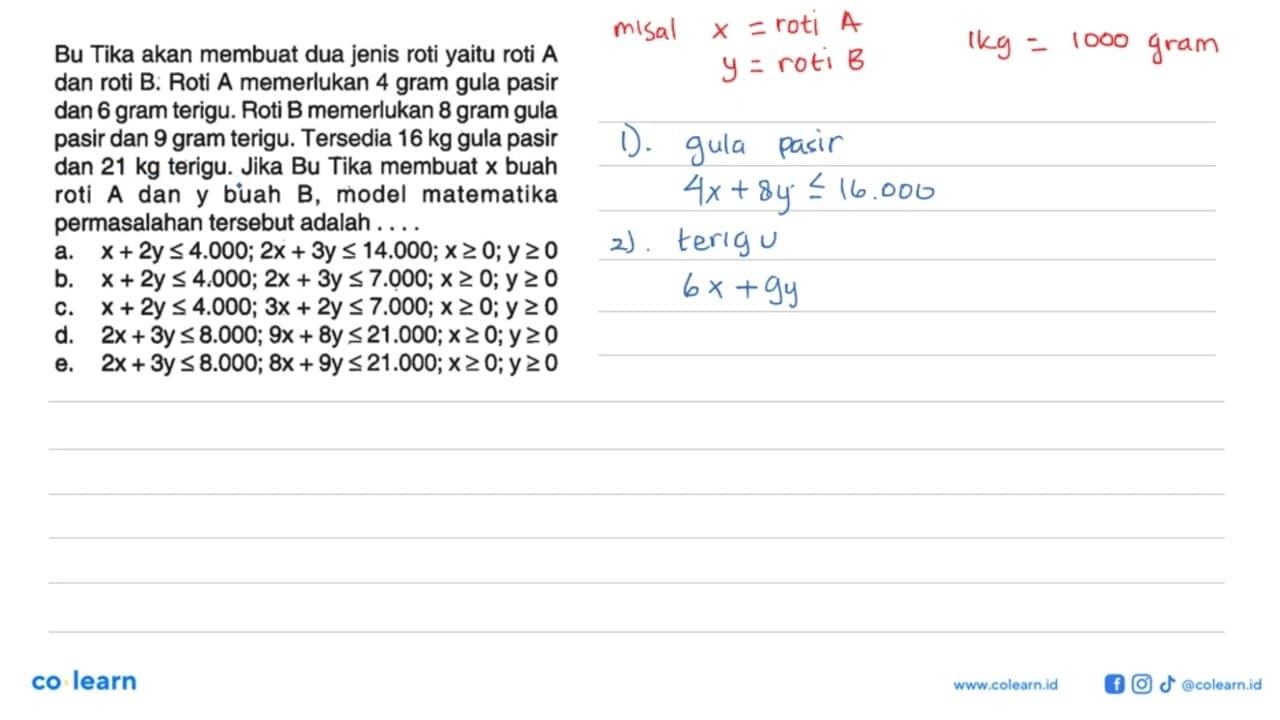 Bu Tika akan membuat dua jenis roti yaitu roti A
dan roti B. Roti A memerlukan 4 gram gula pasir
dan 6 gram terigu. Roti B memerlukan 8 gram gula
pasir dan 9 gram terigu. Tersedia 16 kg gula pasir
dan 21 kg terigu. Jika Bu Tika membuat x buah
roti A dan y buah B, model matematika
permasalahan tersebut adalah . . . .
a. x + 2y ≤ 4.000; 2x + 3y ≤ 14.000; x ≥ 0; y ≥ 0
b. x + 2y ≤ 4.000; 2x + 3y ≤ 7.000; x ≥ 0; y ≥ 0
c. x + 2y ≤ 4.000; 3x + 2y ≤ 7.000; x ≥ 0; y ≥ 0
d. 2x + 3y ≤ 8.000; 9x + 8y ≤ 21.000; x ≥ 0; y ≥ 0
e. 2x + 3y ≤ 8.000; 8x + 9y ≤ 21.000; x ≥ 0; y ≥ 0
misal x = roti A
y = roti B
1kg = 1000 gram
1). gula pasir
4x + 8y ≤ 16.000
2). terigu
6x + 9y
co learn
www.colearn.id
@colearn.id